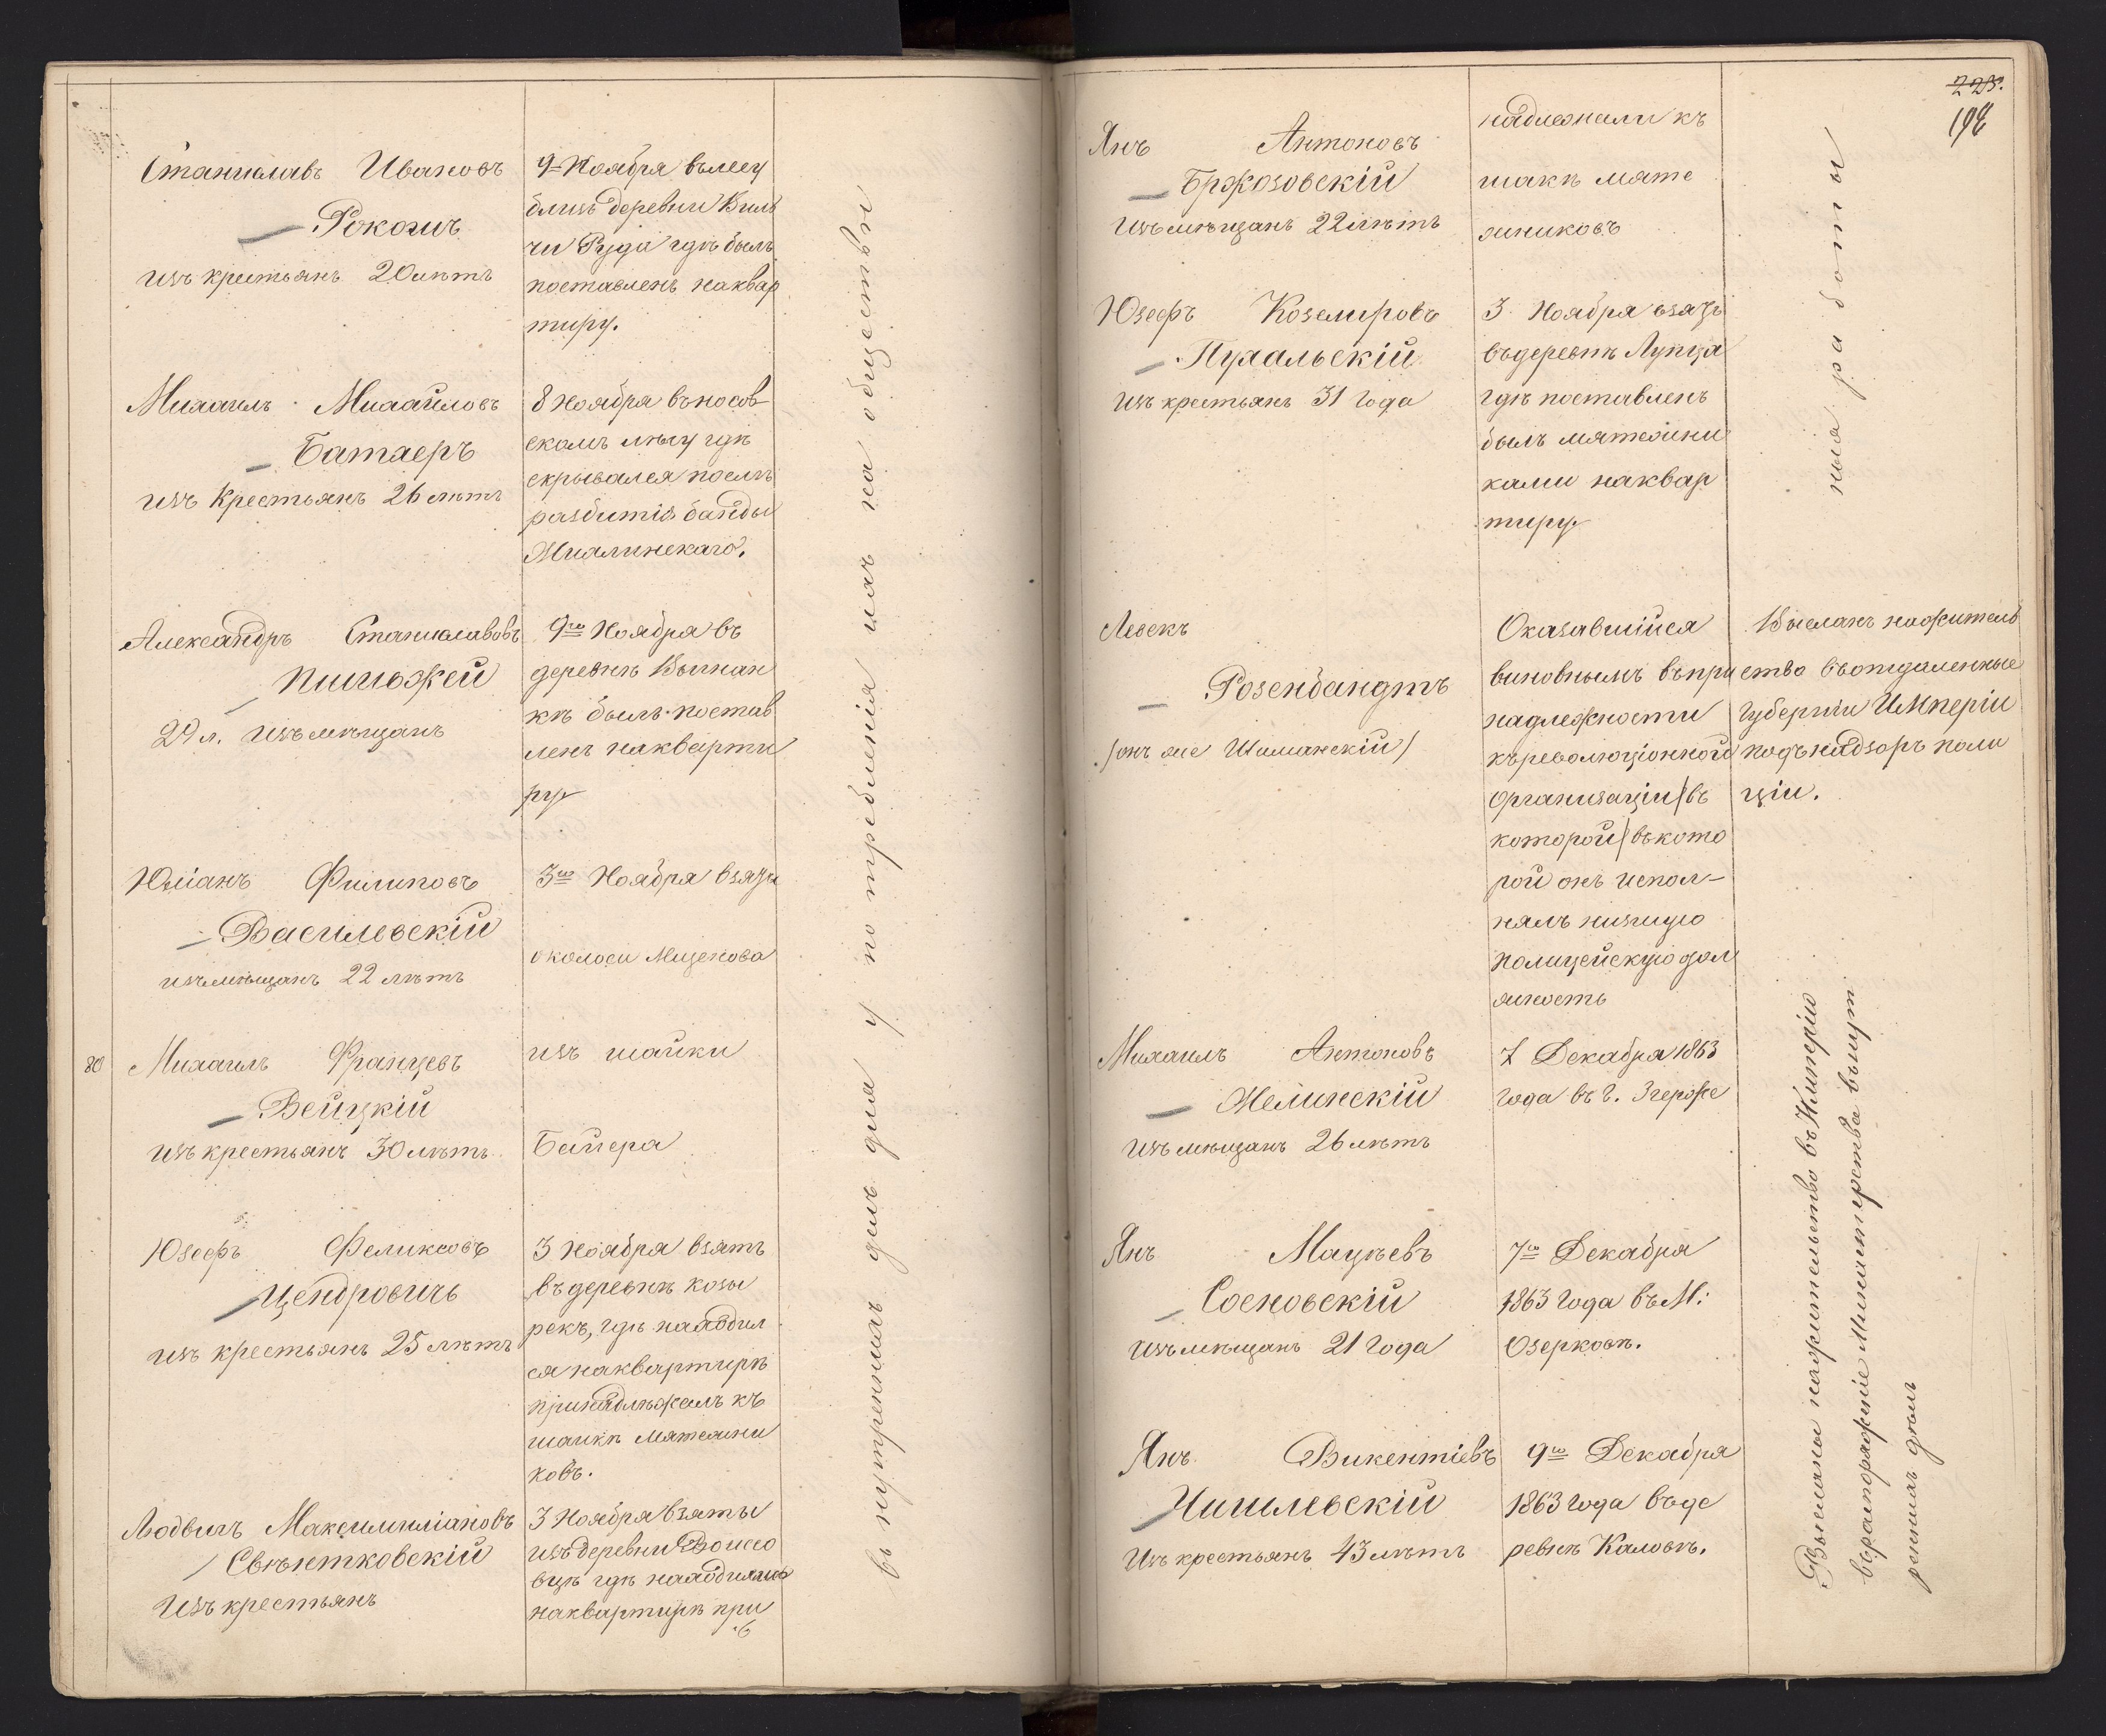 Станиславъ Ивановъ
Рокошъ
изъ крестьянъ 20 лѣтъ
9 Ноября въ лесу
близъ деревни Виль
чи Руда гдѣ былъ
поставленъ на квар
тиру.
Михаилъ Михайловъ
Батаеръ
изъ Крестьянъ 26 лѣтъ
8 Ноября въ носов-
скомъ лѣсу гдѣ
скрывался послѣ
разбитія банды
Александръ Станиславовъ
29 л. изъ мѣщанъ
9го Ноября въ
деревнѣ
кѣ былъ постав
ленъ на кварти
ру
Юліанъ Филиповъ
Василевскій
изъ мѣщанъ 22 лѣтъ
3го Ноября взяты
80 Михаилъ Францевъ
Вейцкій
изъ крестьянъ 30 лѣтъ
изъ шайки
Бейера
Юзефъ Феликсовъ
Цендровичъ
изъ крестьянъ 25 лѣтъ
3 Ноября взятъ
въ деревнѣ козы
рекъ, гдѣ находил
ся на квартирѣ
принадлѣжалъ къ
шайкѣ мятежни
ковъ.
Людвигъ Максимиліановъ
Свѣнтковскій
Изъ крестьянъ
3 Ноября взяты
изъ деревни
гдѣ находились
на квартирѣ при
въ нутреннихъ делъ для употребленія ихъ на обществен
225.
198
Янъ Антоновъ
Бржозовскій
изъ мѣщанъ 22 лѣтъ
надлежали къ
шакѣ мяте
жниковъ
Юзефъ Каземировъ
Пухальскій
Изъ крестьянъ 31 года
3 Ноября взятъ
въ деревнѣ Лупца
гдѣ поставленъ
былъ мятежни
ками на квар
тиру
ныя работы
Левекъ
Розенбандтъ
/онъ же Шиманскій/
Оказавшійся
виновнымъ въ при
надлежности
къ революціонной
организаціи/въ
которой/въ кото
рой онъ испол-
нялъ низшую
полицейскую дол
жность
Высланъ на житель
ство въ отдаленные
Губерніи Имперіи
подъ надзоръ поли
ціи.
Михаилъ Антоновъ
Желинскій
Изъ мѣщанъ 26 лѣтъ
7 Декабря 1863
года въ г. Згерже
Янъ Мацѣевъ
Сосновскій
Изъ мѣщанъ 21 года
7го Декабря
1863 года въ М:
Озерковѣ.
Янъ Викентіевъ
Изъ крестьянъ 43 лѣтъ
9го Декабря
1863 года въ де
ревнѣ Каловѣ.
Высланы на жительство въ Имперію
въ распоряженіе Министерства внут
реннихъ дѣлъ